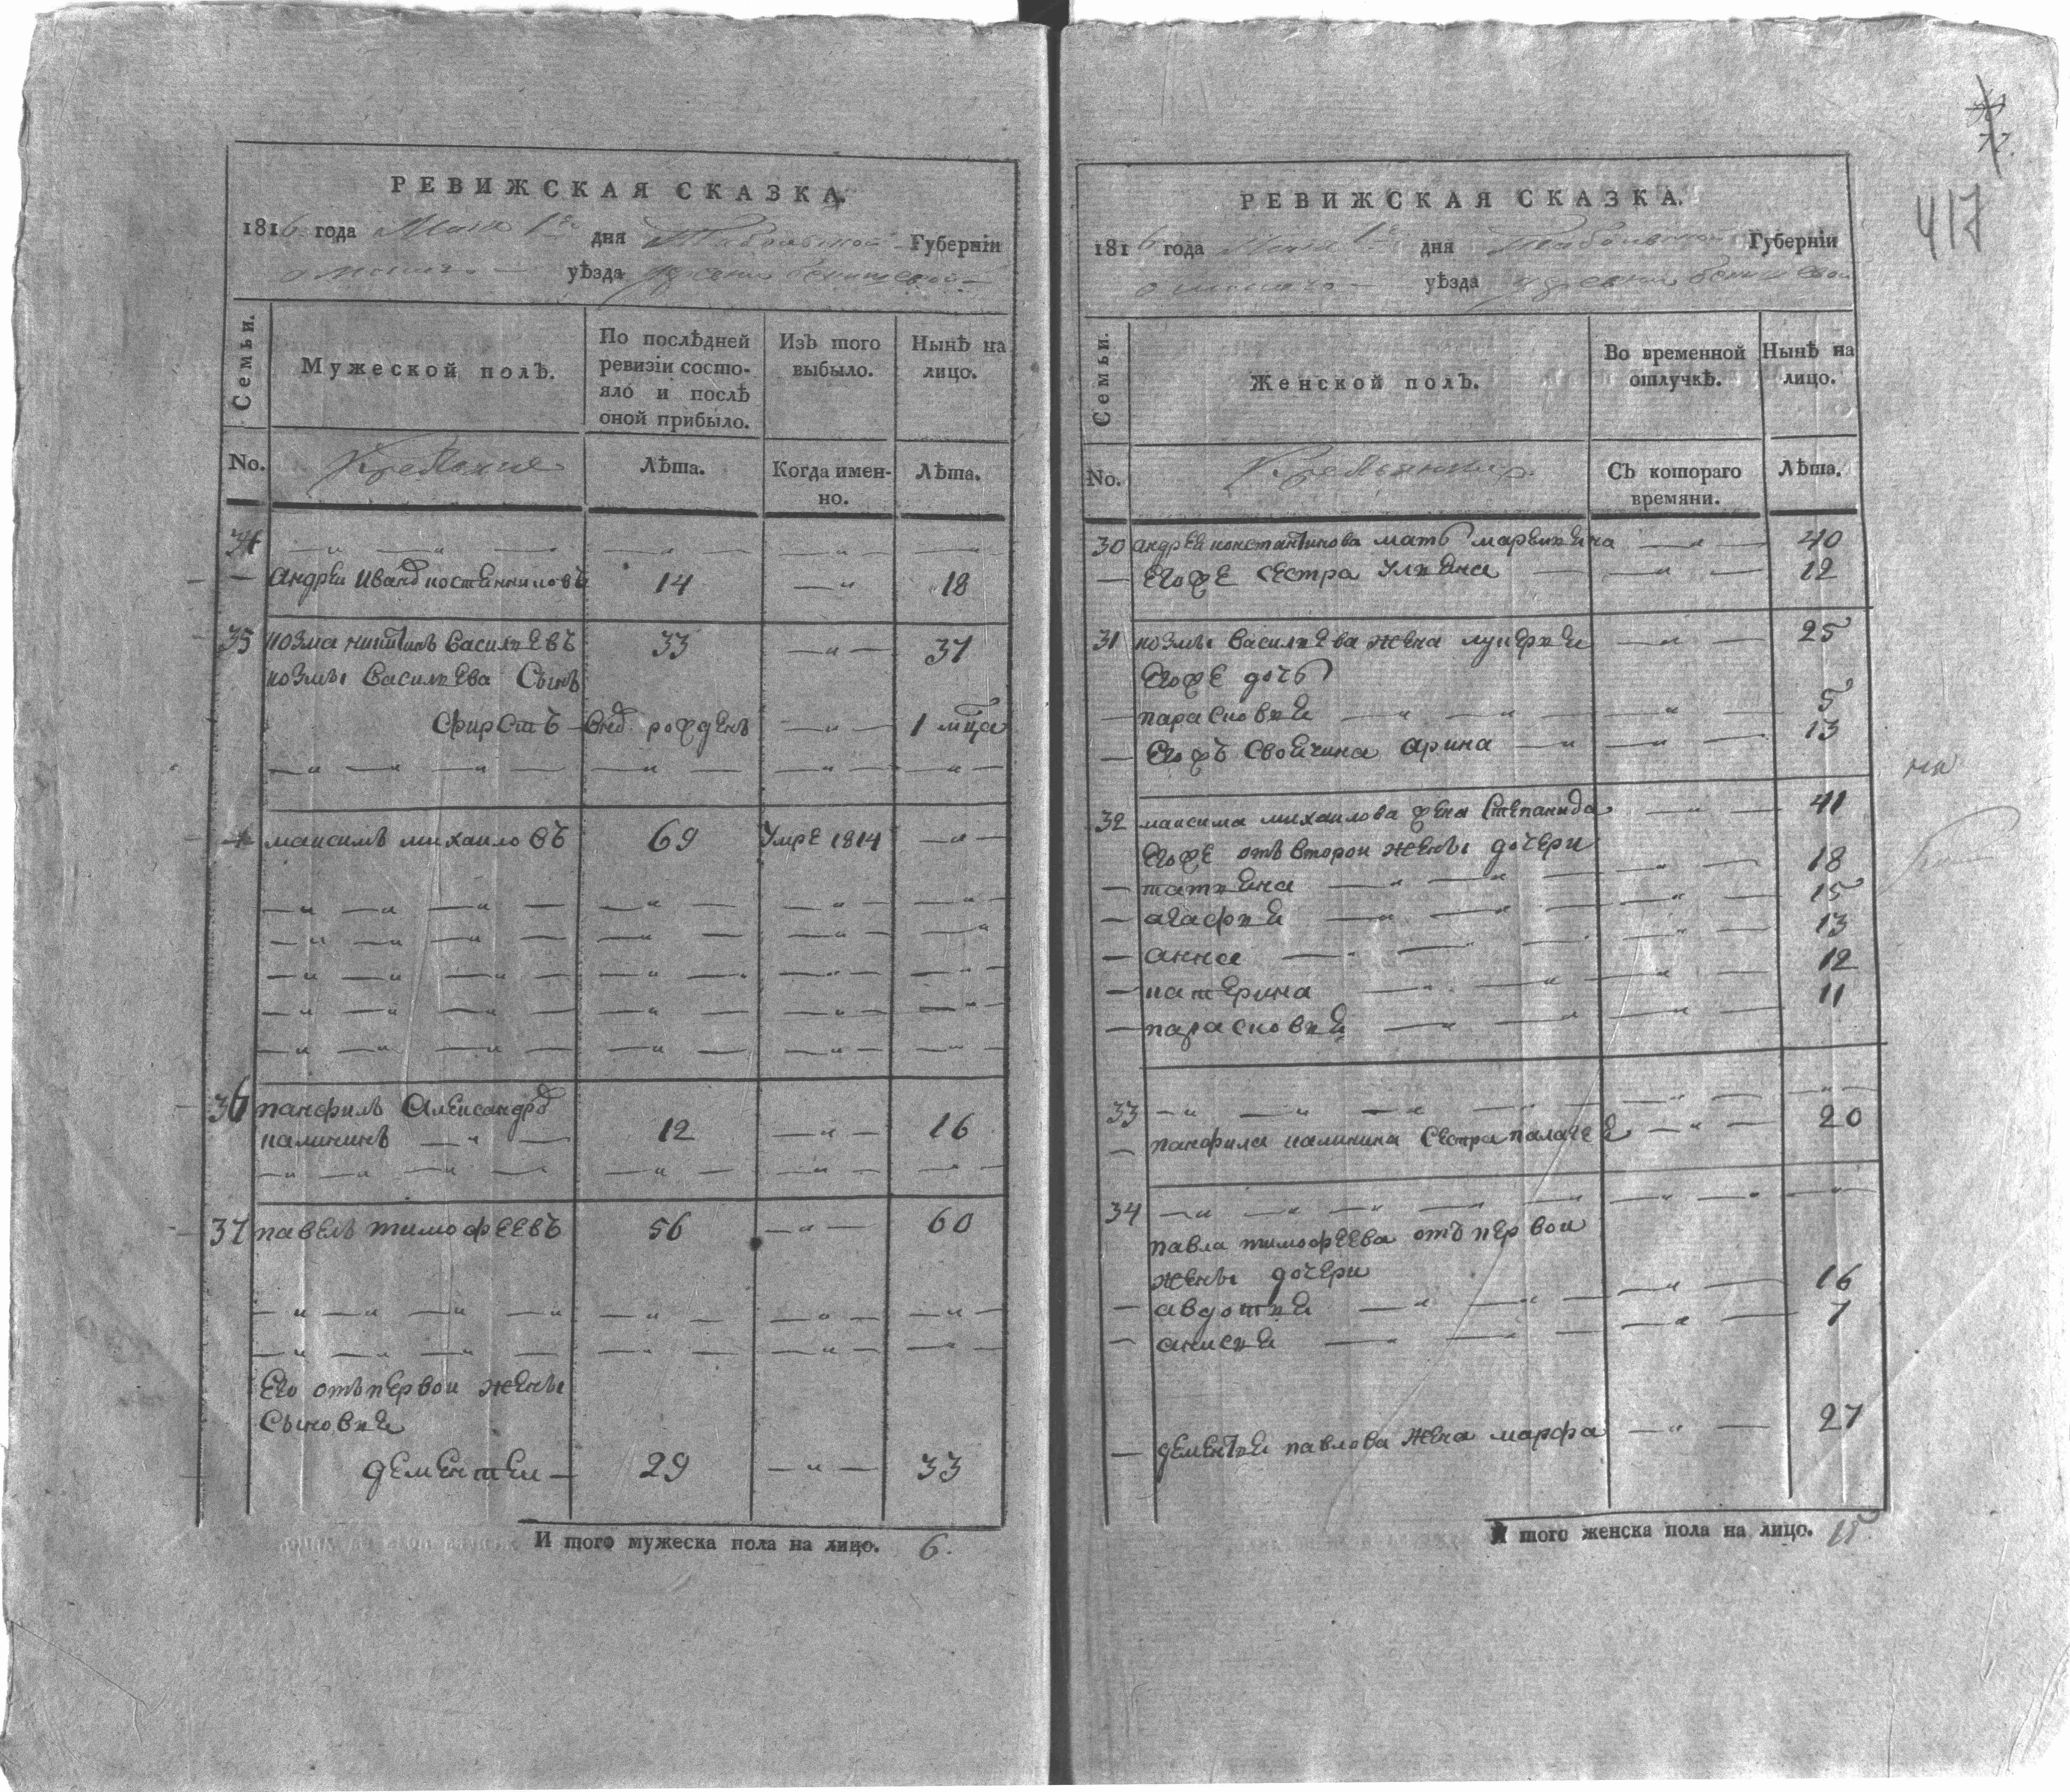 РЕВИЖСКАЯ СКАЗКА.
1816 года Мая 1го дня Тобольской Губерніи
омскаго уѣзда
Семьи.
Мужеской полъ.
По послѣдней ревизіи состо-
яло и послѣ
оной прибыло.
Изъ того
выбыло.
Нынѣ на
лицо.
No.
Лѣта.
Когда имен-
но.
Лѣта.
34
андреи иванд костеннтиновъ 14 18
35 козма никитинъ василʼевъ 33 37
козмы василʼева сынъ
фирстъ внд рожденъ 1 мца
максимъ михаиловъ 69 умре 1814
36 панфилъ александрд
калининъ 12 16
37 павелъ тимофеевъ 56 60
его отъ первои жены
сыновья
дементеи 29 33
И того мужеска пола на лицо. 6.
417
РЕВИЖСКАЯ СКАЗКА.
1816 года Мая 1го дня Тобольской Губерніи
омскаго уѣзда
Семьи.
Женской полъ.
Во временной
отлучкѣ.
Нынѣ на
лицо.
No.
Крестьянки
Съ котораго
времяни.
Лѣта.
30 андрея константинова мать 40
егоже сестра улʼяна 12
31 козмы василʼева жена лукерʼя 25
егоже дочь
парасковʼя 5
егожъ своячина арина 13
32 максима михаилова жена степанида 41
егоже отъ второи жены дочери
татʼяна 18
агафʼя 15
анна 13
катерина 12
парасковʼя 11
33
панфила калинина сестра палагея 20
34
павла тимофеева отъ первои
жены дочери
авдотʼя 16
анисʼя 7
дементʼя павлова жена марфа 27
И того женска пола на лицо. 15.